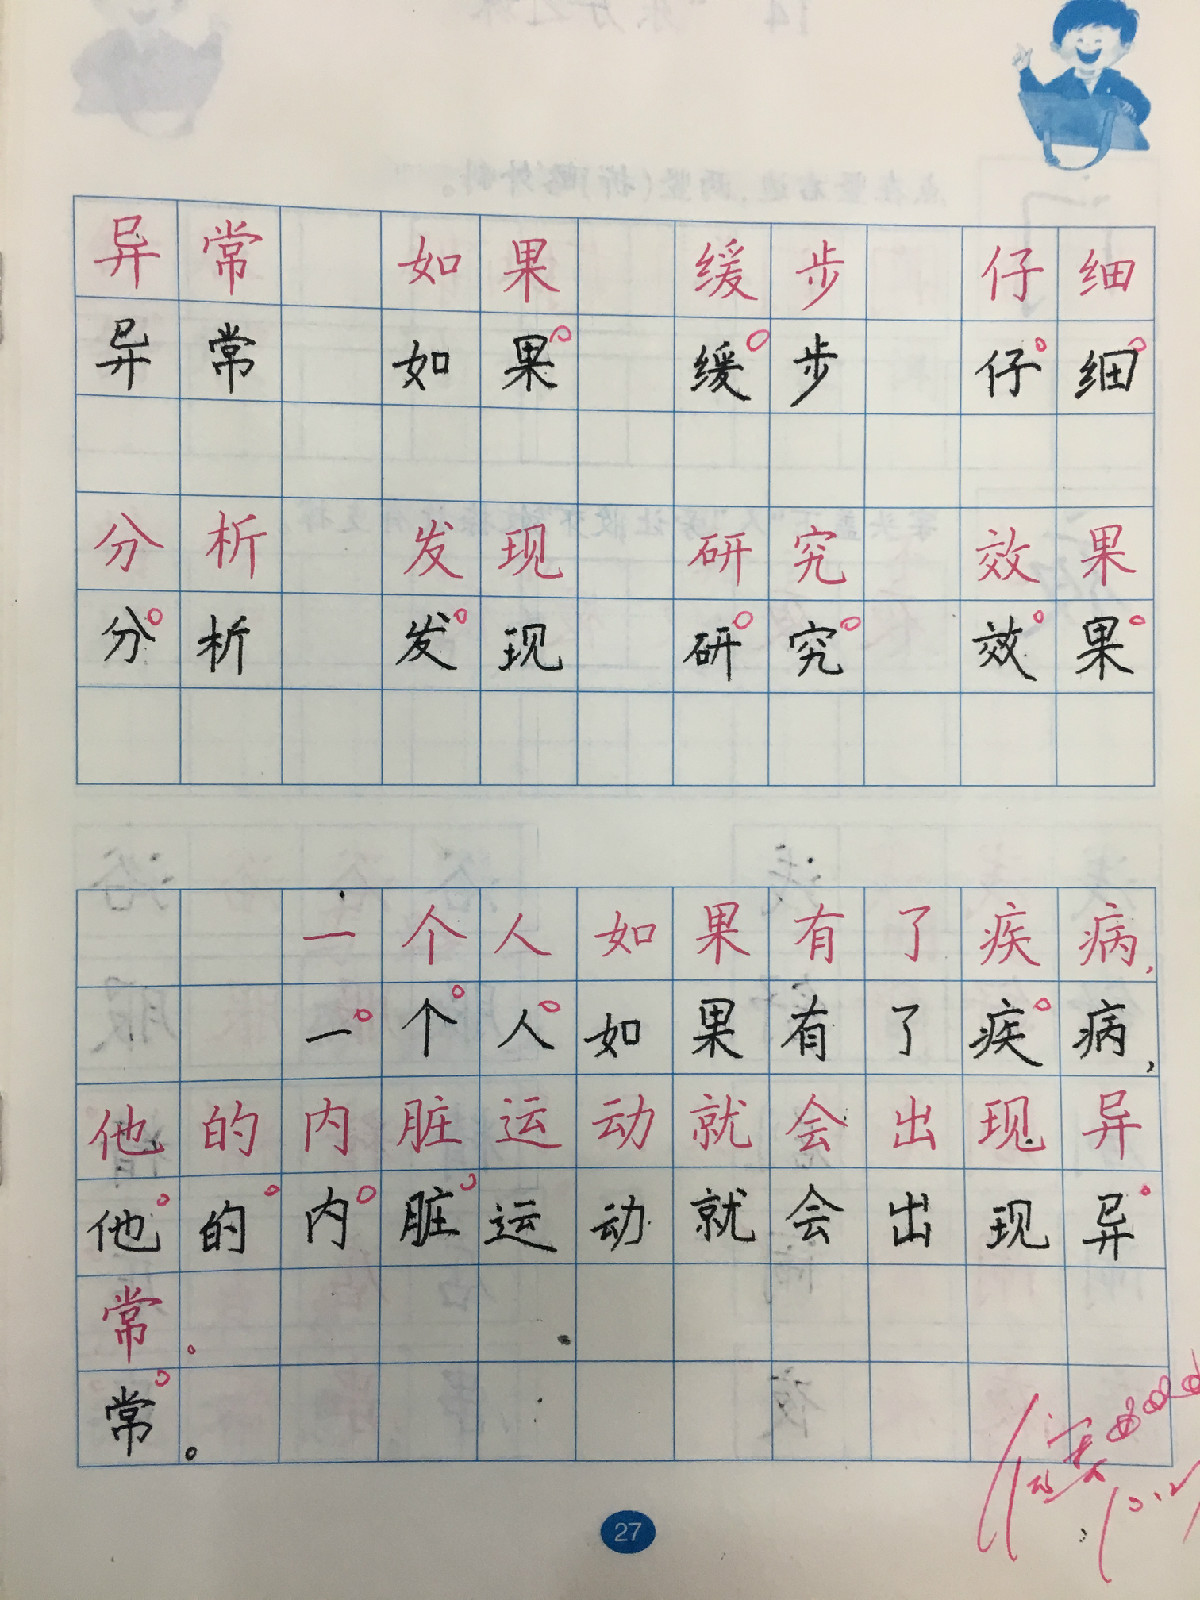 异常 如果 缓步 仔细
异常 如果 缓步 仔细
分析 发现 研究 效果
分析 发现 研究 效果
一个人如果有了疾病,
一个人如果有了疾病,
他的内脏运动就会出现异
他的内脏运动就会出现异
常。
常。
27